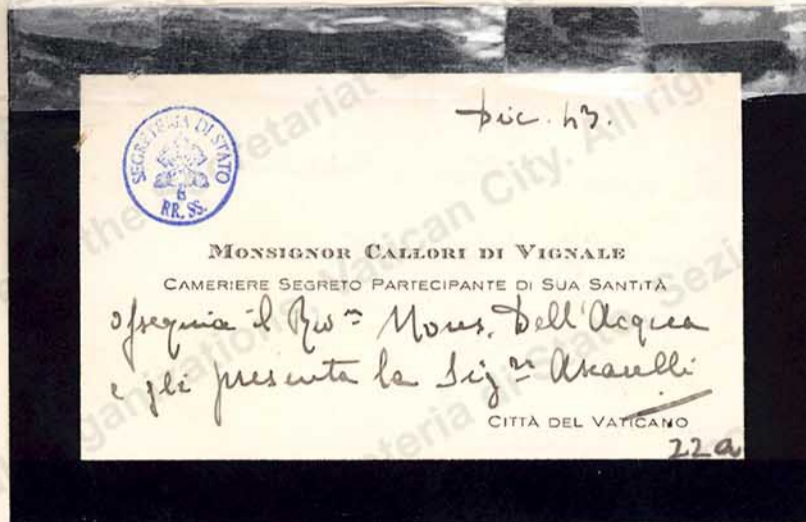 Dic. 43.
SEGRETERIA DI STATO
RR. SS.
MONSIGNOR CALLORI DI VIGNALE
CAMERIERE SEGRETO PARTECIPANTE DI SUA SANTITÀ
ossequia il Rev.mo Mons. Dell'Acqua
e gli presenta la Sig.ra Ascarelli
CITTÀ DEL VATICANO
22a